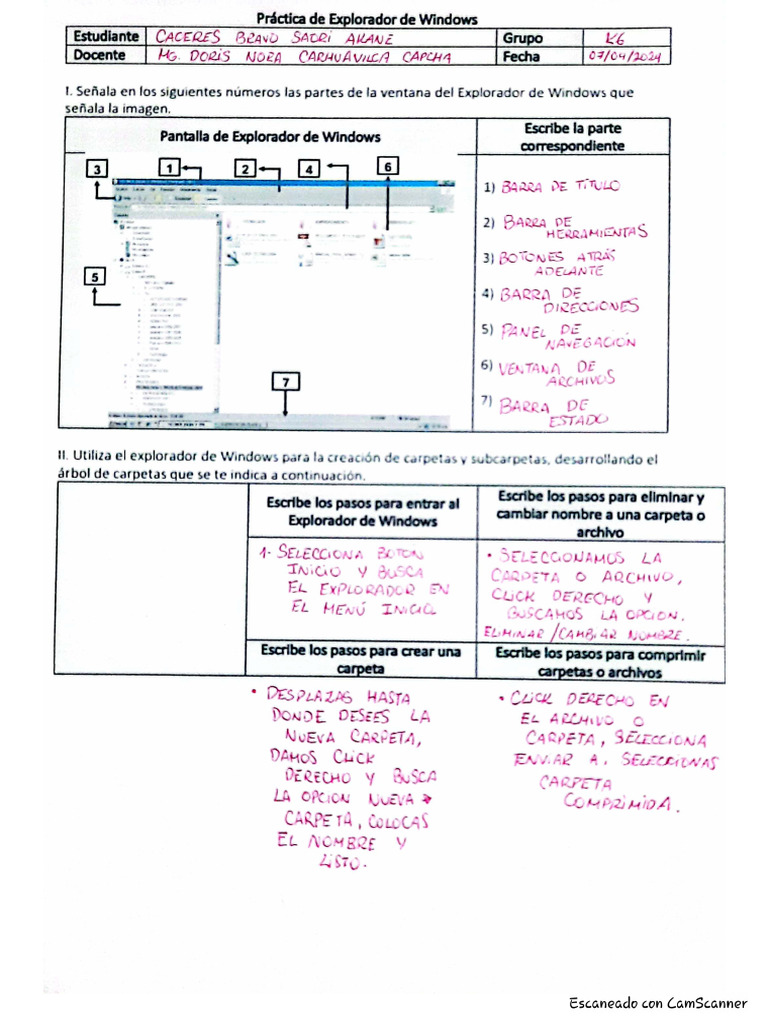 Práctica de Explorador de Windows
Estudiante CACERES BRAVO SADRI AKANE Grupo K6
Docente MG. DORIS NORA CARHUAVILCA CAPCHA Fecha 07/04/2024
I. Señala en los siguientes números las partes de la ventana del Explorador de Windows que
señala la imagen.
Pantalla de Explorador de Windows
Escribe la parte
correspondiente
3 1 2 4 6
5
7
1) BARRA DE TÍTULO
2) BARRA DE
HERRAMIENTAS
3) BOTONES ATRÁS
ADELANTE
4) BARRA DE
DIRECCIONES
5) PANEL DE
NAVEGACIÓN
6) VENTANA DE
ARCHIVOS
7) BARRA DE
ESTADO
II. Utiliza el explorador de Windows para la creación de carpetas y subcarpetas, desarrollando el
árbol de carpetas que se te indica a continuación.
Escribe los pasos para entrar al
Explorador de Windows
1- SELECCIONA BOTON
INICIO Y BUSCA
EL EXPLORADOR EN
EL MENÚ INICIO
Escribe los pasos para eliminar y
cambiar nombre a una carpeta o
archivo
• SELECCIONAMOS LA
CARPETA O ARCHIVO,
CLICK DERECHO Y
BUSCAMOS LA OPCION.
ELIMINAR/CAMBIAR NOMBRE.
Escribe los pasos para crear una
carpeta
• DESPLAZAS HASTA
DONDE DESEES LA
NUEVA CARPETA,
DAMOS CLICK
DERECHO Y BUSCA
LA OPCION NUEVA
CARPETA, COLOCAS
EL NOMBRE Y
LISTO.
Escribe los pasos para comprimir
carpetas o archivos
• CLICK DERECHO EN
EL ARCHIVO O
CARPETA, SELECCIONA
ENVIAR A. SELECCIONAS
CARPETA
COMPRIMIDA.
Escaneado con CamScanner